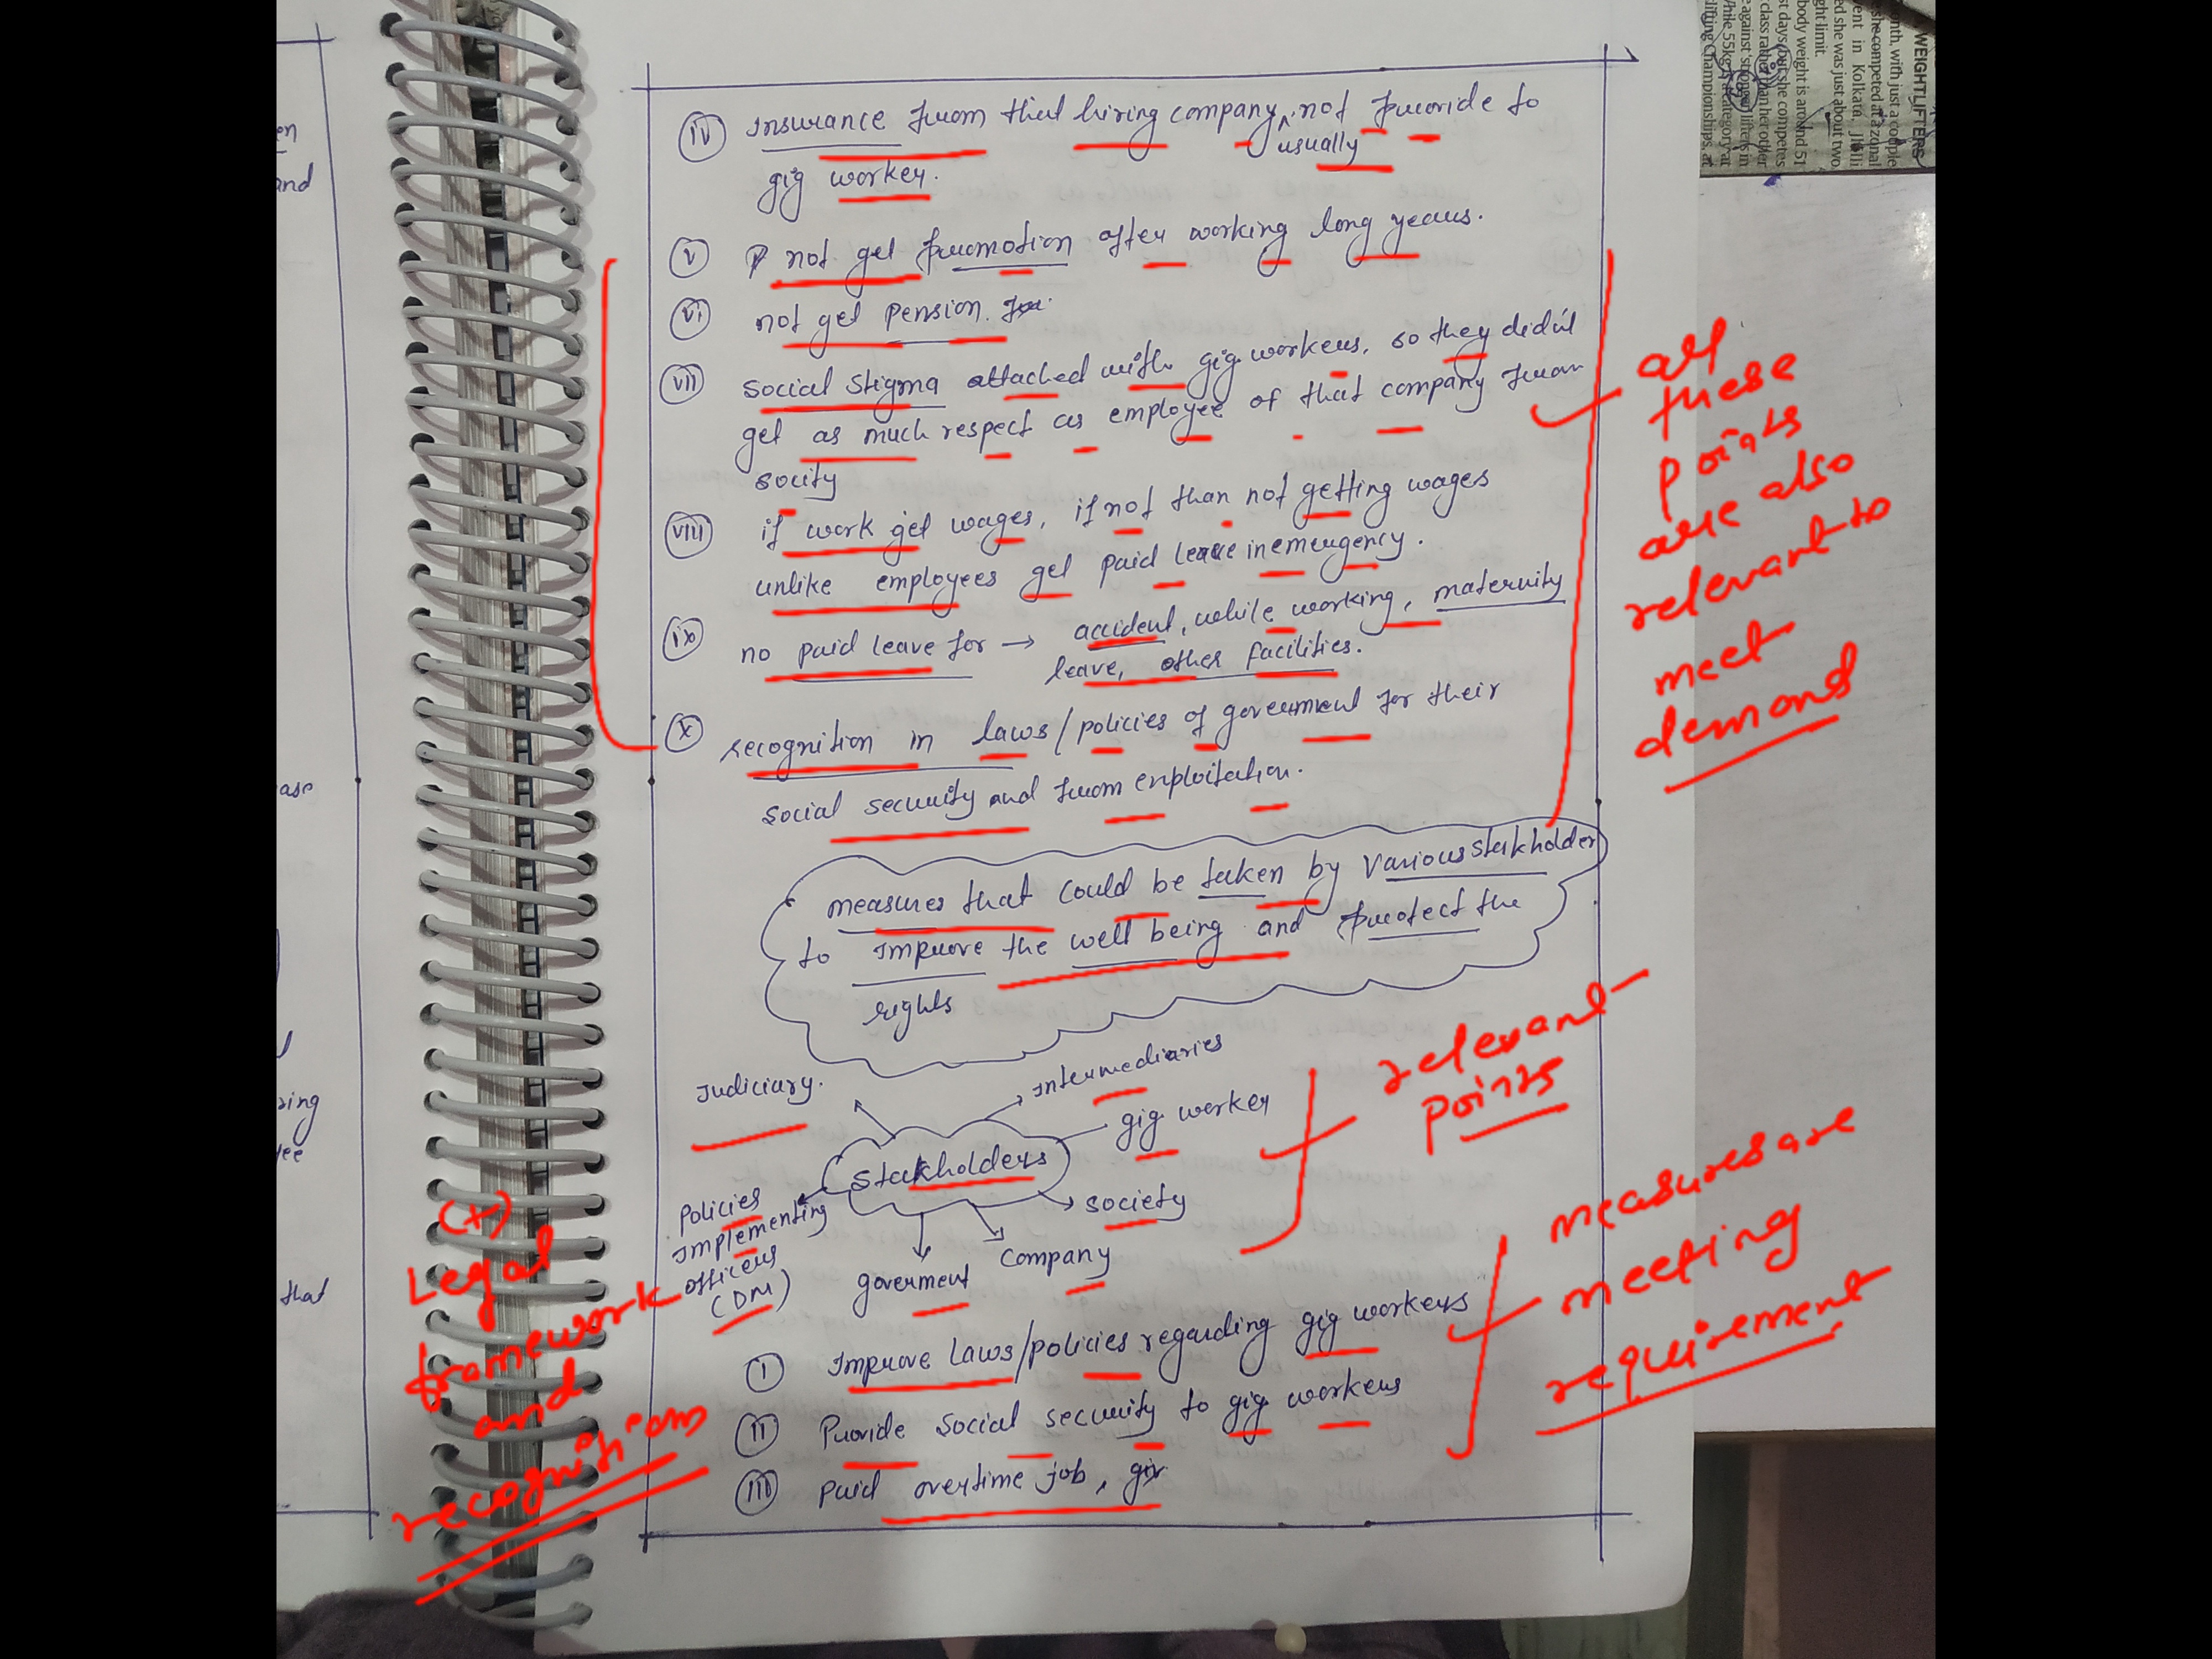 (iv) Insurance from that hiring company, not provide to
usually
gig worker.
(v) not get promotion after working long years.
(vi) not get pension.
(vii) social stigma attached with gig workers, so they didn't
get as much respect as employee of that company from
socity
(viii) if work get wages, if not than not getting wages
unlike employees get paid leave in emergency.
(ix) no paid leave for → accident, while working, maternity
leave, other facilities.
(x) recognition in laws/policies of goverment for their
social security and from exploitation.
all
these
points
are also
relevant to
meet
demand
measures that could be taken by various stakholder
to improve the well being and protect the
rights
Judiciary.
Intermediaries
gig worker
Stakholders
society
Company
goverment
Policies
Implementing
officers
(DM)
relevant
points
(I) Improve laws/policies regarding gig workers
(II) Provide social security to gig workers
(III) Paid overtime job,
measures are
meeting
requirement
(+)
Legal
framework
and
recognition
en
and
ase
ing
tee
that
WEIGHTLIFTERS
onth, with just a couple
she competed at a zonal
ent in Kolkata, Jhilli
ed she was just about two
ght limit.
body weight is around 51
st days but she competes
class rather than her other
e against stronger lifters in
While 55kg is a category at
lifting Championships, at